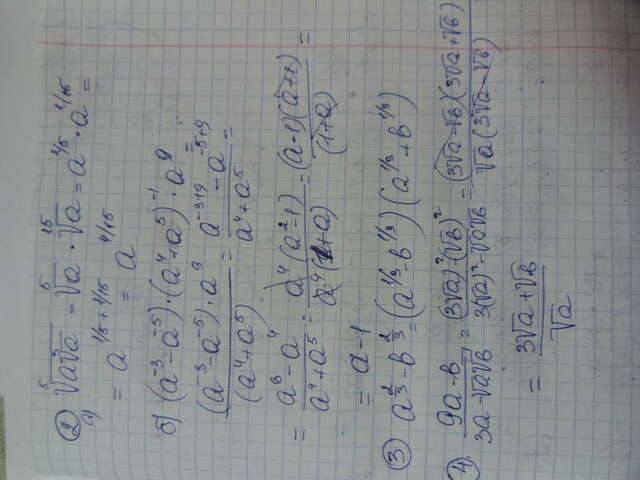 ② a) ⁵√(a∛a) = ⁵√a · ¹⁵√a = a^(1/5) · a^(1/15) =
= a^(1/5 + 1/15) = a^(4/15)
б) (a^(-3) - a^(-5)) · (a^4 + a^5)^(-1) · a^9 =
((a^(-3) - a^(-5)) · a^9)/(a^4 + a^5) = (a^(-3+9) - a^(-5+9))/(a^4 + a^5) =
= (a^6 - a^4)/(a^4 + a^5) = (a^4(a^2 - 1))/(a^4(1 + a)) = ((a-1)(a+1))/(1+a) =
= a - 1
③ a^(2/3) - b^(2/3) = (a^(1/3) - b^(1/3))(a^(1/3) + b^(1/3))
④ (9a - b)/(3a - √a√b) = ((3√a)² - (√b)²)/(3(√a)² - √a√b) = ((3√a - √b)(3√a + √b))/(√a(3√a - √b))
= (3√a + √b)/√a